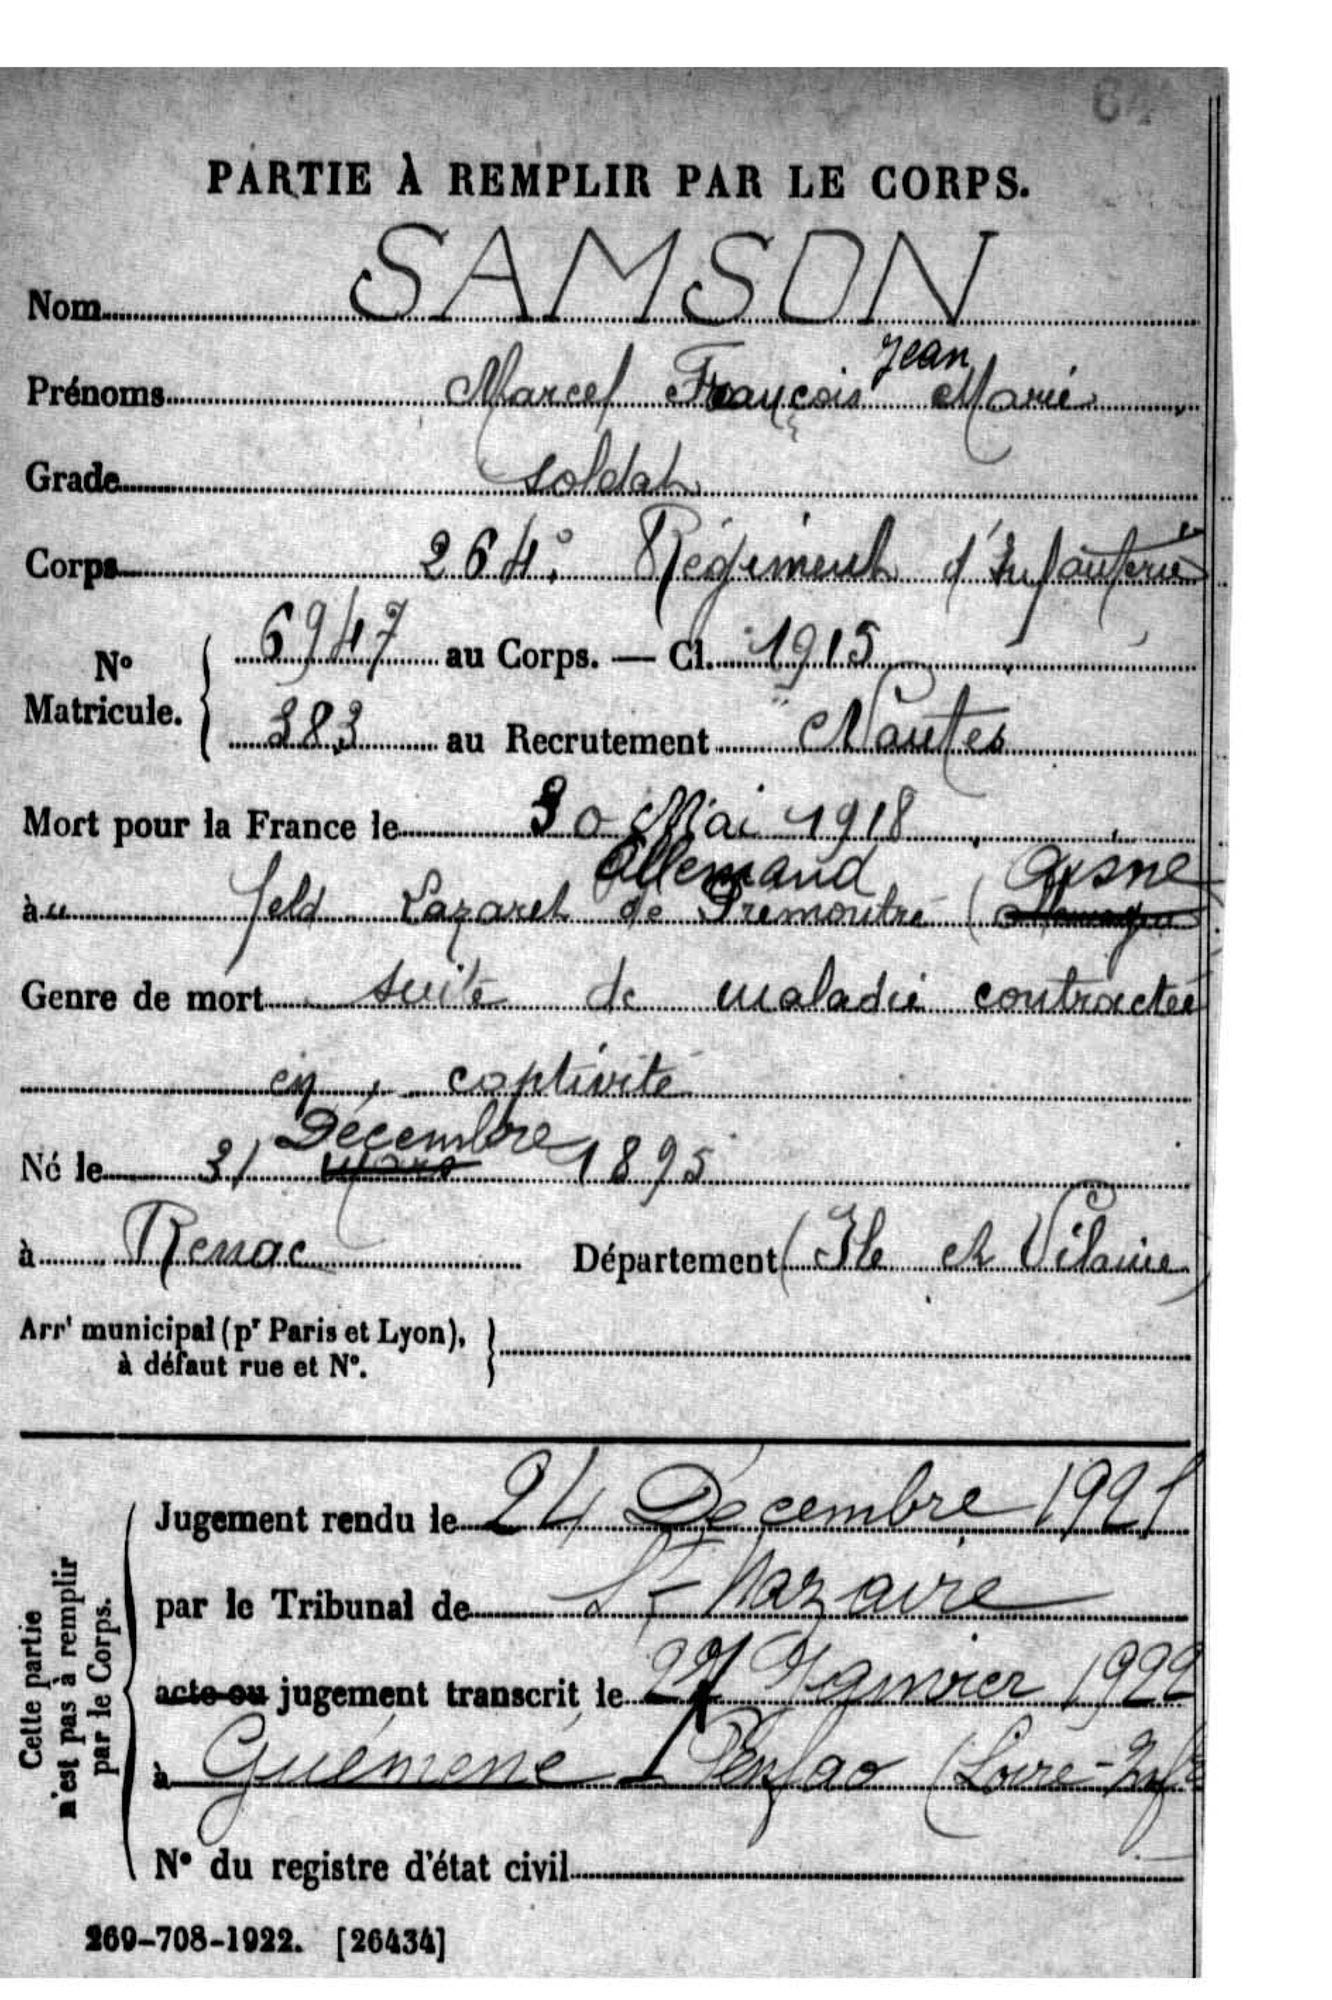 64
PARTIE À REMPLIR PAR LE CORPS.
Nom SAMSON
Jean
Prénoms Marcel François Marie
Grade soldat
Corps 264e Régiment d'Infanterie
N° Matricule. 6947 au Corps. — Cl. 1915
383 au Recrutement Nantes
Mort pour la France le 30 Mai 1918
Allemand Aisne
àu feld Lazaret de Prémontré (Allemagne
Genre de mort suite de maladie contractée
en captivité
Décembre
Né le 31 Mars 1895
à Renac Département (Ile et Vilaine)
Arrt municipal (pr Paris et Lyon),
à défaut rue et N°.
Cette partie
n'est pas à remplir
par le Corps.
Jugement rendu le 24 Décembre 1921
par le Tribunal de St-Nazaire
acte ou jugement transcrit le Janvier 1922
à Guémené Penfao (Loire-Infre
N° du registre d'état civil
269-708-1922. [26434]